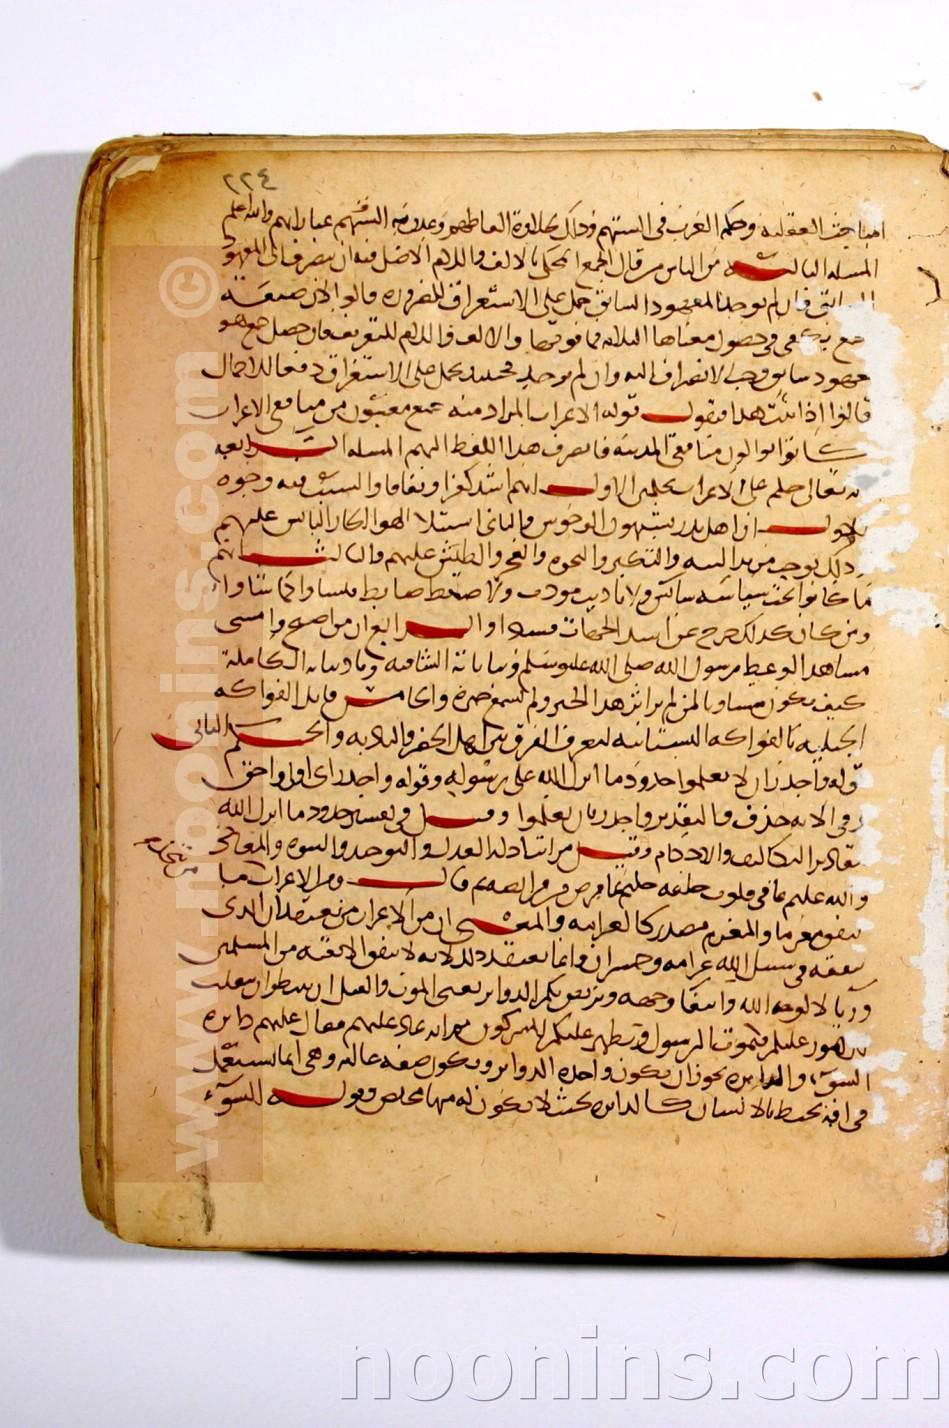 ٢٢٤
المباحث العقلية وحكمة العرب في السنتهم وذلك بحلاوة الفاظهم وعذوبة عباراتهم والله اعلم
المسلة الثالثة من الناس من قال الجمع المحلى بالالف واللام الاصل فيه ان ينصرف الى المعهود
السابق فان لم يوجد المعهود السابق حمل على الاستغراق للضرورة قالوا لان صيغة
جمع يكفي في حصول معناها الثلاثة فما فوقها والالف واللام للتعريف فان حصل جمع هو
معهود سابق وجب الانصراف اليه وان لم يوجد فحينئذ يحمل على الاستغراق دفعا للاجمال
قالوا اذا ثبت هذا فنقول قوله الاعراب المراد منه جمع معينون من منافقي الاعراب
كانوا يوالون منافقي المدينة فانصرف هذا اللفظ اليهم المسلة الرابعة
انه تعالى حكم على الاعراب بحكمين الاول انهم اشد كفرا ونفاقا والسبب فيه وجوه
الاول ان اهل البدو يشبهون الوحوش والثاني استيلا الهوا الحار اليابس عليهم
وذلك يوجب مزيد التيه والتكبر والنخوة والفخر والطيش عليهم والثالث انهم
ما كانوا تحت سياسة سائس ولا تاديب مودب ولا ضبط ضابط فنشاوا كما شاوا
ومن كان كذلك خرج على اشد الجهات فسادا والرابع ان من اصبح وامسى
مشاهدا لوعظ رسول الله صلى الله عليه وسلم وبياناته الشافية وتاديباته الكاملة
كيف يكون مساويا لمن لم يوثر هذا الخير ولم يسمع خبره والخامس قابل الفواكه
الجبلية بالفواكه البستانية لتعرف الفرق بين اهل الحضر والبادية والحكم الثاني
قوله واجدر ان لا يعلموا حدود ما انزل الله على رسوله وقوله واجدر اي اولى واحق
وفي الاية حذف والتقدير واجدر بان لا يعلموا وقيل في تفسير حدود ما انزل الله
مقادير التكاليف والاحكام وقيل مراتب ادلة العدل والتوحيد والنبوة والمعاد
والله عليم بما في قلوب خلقه حكيم بما فرض من فرايضه ثم قال ومن الاعراب من
ينفق مغرما والمغرم مصدر كالغرامة والمعنى ان من الاعراب من يعتقد ان الذي
ينفقه في سبيل الله غرامة وخسران وانما يعتقد ذلك لانه لا ينفق الا تقية من المسلمين
وريا لا لوجه الله وابتغا وجهه ويتربص بكم الدواير يعني الموت والقتل اي ينتظر ان تنقلب
الامور عليكم بموت الرسول ويظهر عليكم المشركون ثم انه عاد عليهم فقال عليهم دايرة
السوء والدايرة يجوز ان يكون واحدة الدواير ويكون صفة غالبة وهي انما تستعمل
في افة تحيط بالانسان كالدايرة بحيث لا يكون له منها مخلص وقوله السوء